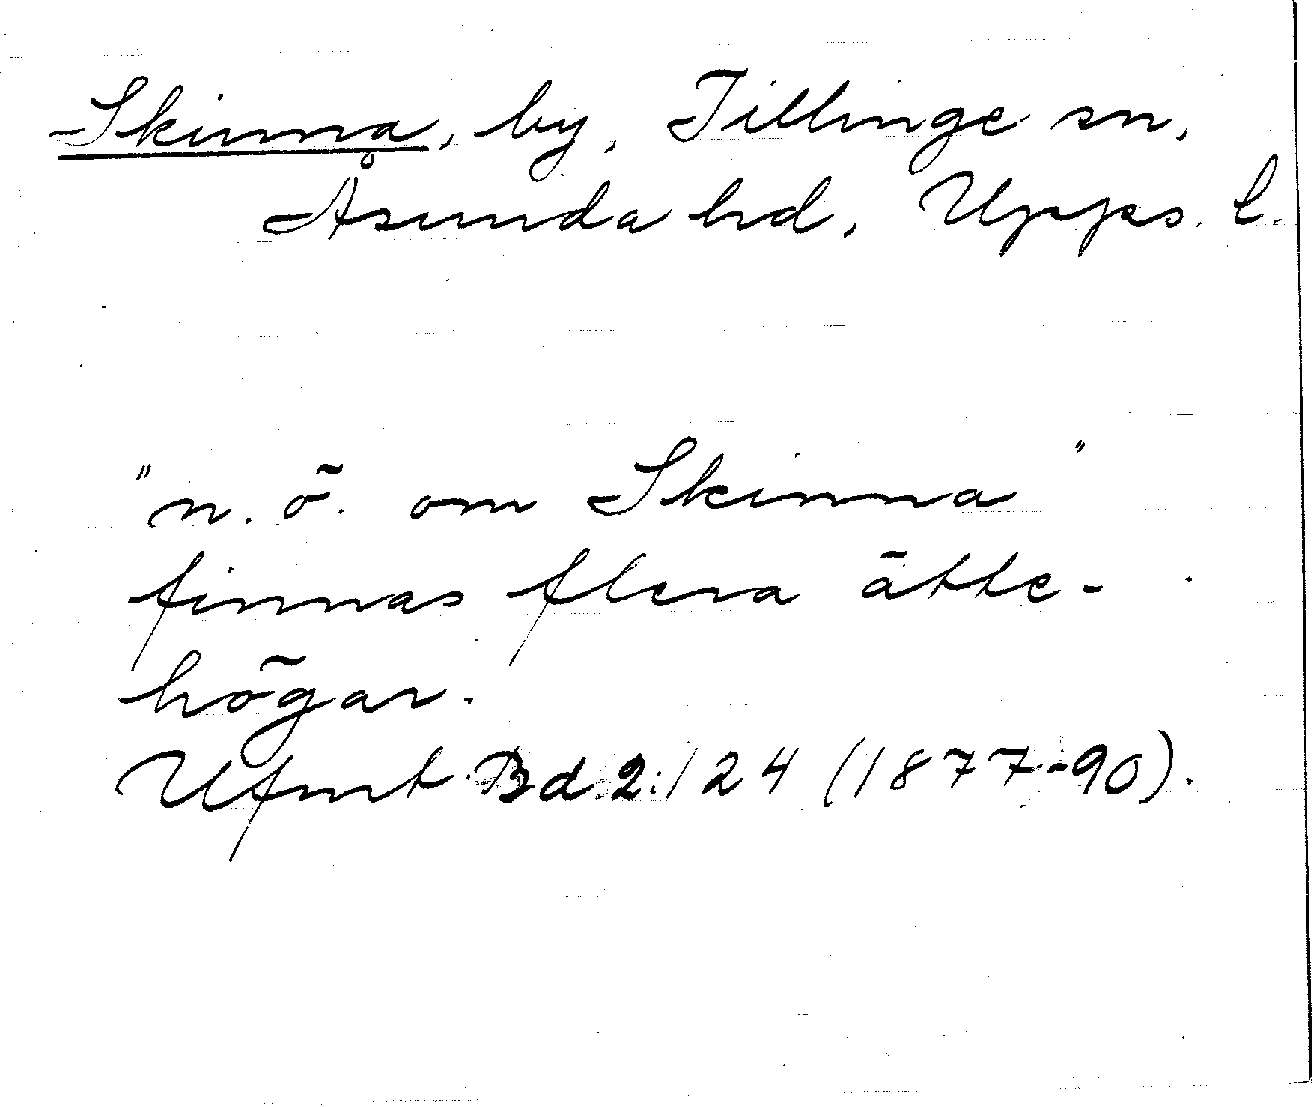 Skinna, by, Tillinge sn,
Åsunda hd, Upps. l.
"n. ö. om Skinna"
finnas flera ätte-
högar.
Ufmt Bd 2:124 (1877-90).